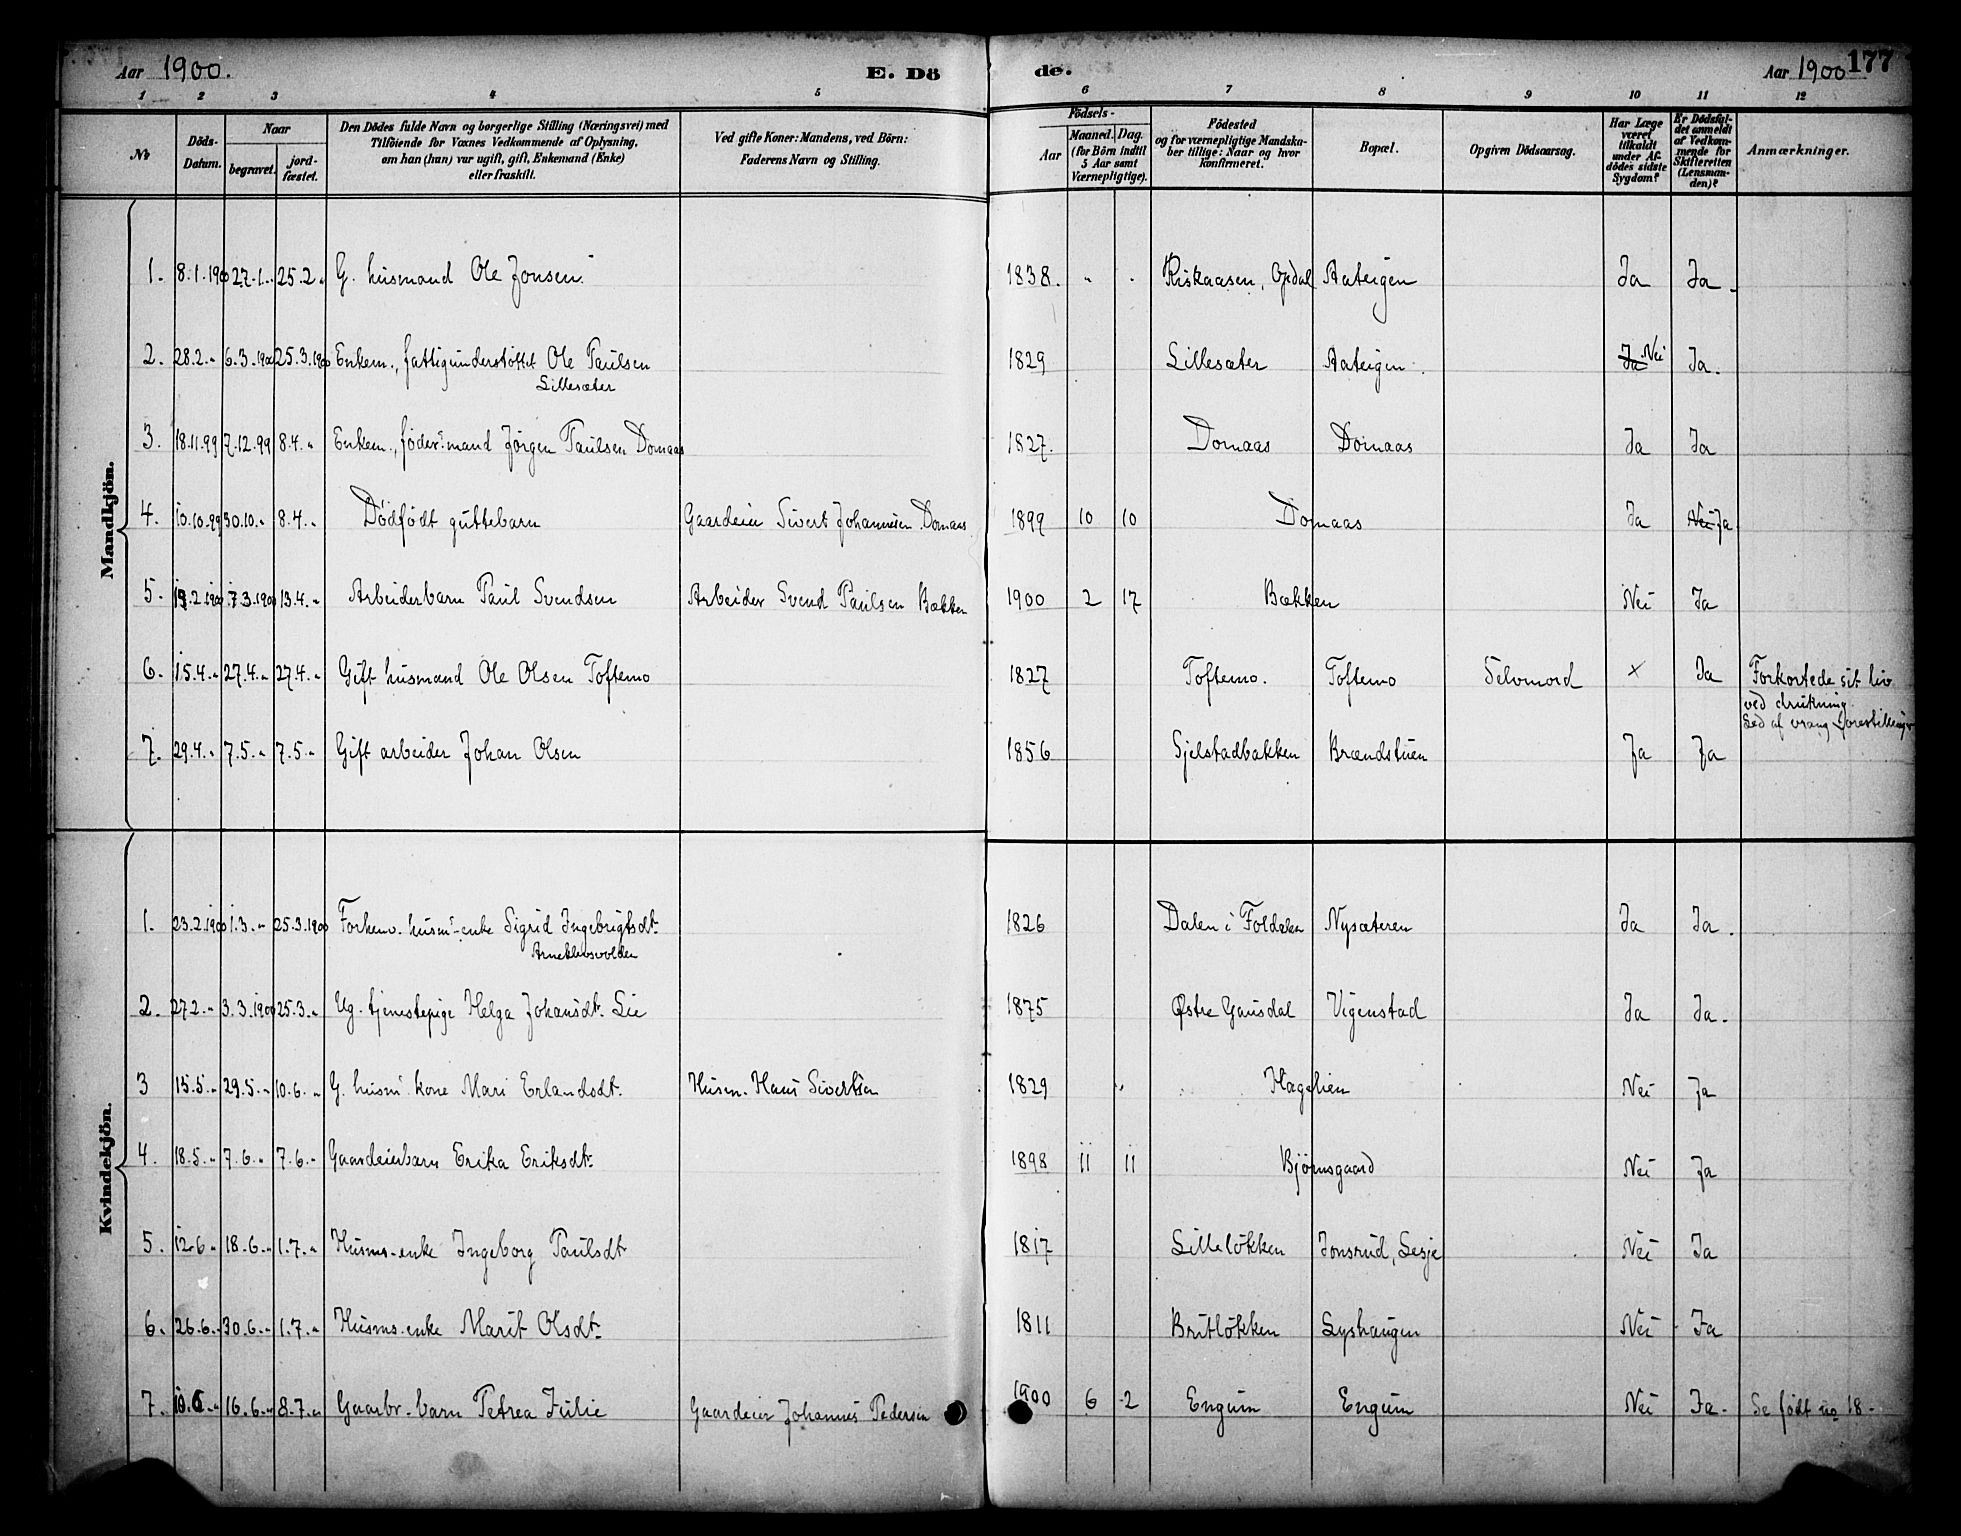 Aar 1900. E. Dö de. Aar 1900 177
1 2 3 4 5 6 7 8 9 10 11 12
No Döds-Datum. Naar begravet. jord-fæstet. Den Dödes fulde Navn og borgerlige Stilling (Næringsvei) med Tilföiende for Voxnes Vedkommende af Oplysning, om han (hun) var ugift, gift, Enkemand (Enke) eller fraskilt. Ved gifte Koner: Mandens, ved Börn: Faderens Navn og Stilling. Födsels- Aar Maaned. Dag. (for Börn indtil 5 Aar samt Værnepligtige). Födested og for værnepligtige Mandska-ber tillige: Naar og hvor konfirmeret. Bopæl. Opgiven Dödsaarsag. Har Læge været tilkaldt under Af-dödes sidste Sygdom? Er Dödsfal-det anmeldt af Vedkom-mende for Skifteretten (Lensman-den)? Anmærkninger.
Mandkjön.
1. 8.1.1900 27.1.„ 25.2„ G. husmand Ole Jonsen. 1838. „ . Riskaasen, Opdal Aateigen Ja Ja.
2. 28.2.„ 6.3.1900 25.3.1900 Enkem., fattigunderstøttet Ole Paulsen 1829 Lillesæter Aateigen. Ja Nei Ja.
Lillesæter
3. 18.11.99 7.12.99 8.4.„ Enkem., føder.mand Jørgen Paulsen Domaas 1827. Domaas Domaas Ja Ja
4. 10.10.99 30.10.„ 8.4.„ Dødfødt guttebarn Gaardeier Sivert Johannesen Domaas 1899 10 10 Domaas Ja Nei Ja.
5. 19.2.1900 7.3.1900 13.4.„ Arbeiderbarn Paul Svendsen Arbeider Svend Paulsen Bækken 1900 2 17 Bækken Nei Ja
6. 15.4.„ 27.4.„ 27.4.„ Gift husmand Ole Olsen Toftemo 1827 Toftemo. Toftemo Selvmord x Ja Forkortede sit liv
ved drukning.
Led af vrang forestillinger
7. 29.4.„ 7.5.„ 7.5.„ Gift arbeider Johan Olsen 1856 Sjelstadbakken Brændstuen Ja Ja
Kvindekjön.
1. 23.2.1900 1.3.„ 25.3.1900 Forhenv. husm.-enke Sigrid Ingebrigtsdt. 1826 Dalen i Foldalen Nysæteren Ja Ja.
2. 27.2.„ 3.3.1900 25.3.„ Ug. tjenestepige Helga Johansdt. Lie 1875 Østre Gausdal Vigenstad Ja Ja.
3 15.5.„ 29.5.„ 10.6.„ G. husm. kone Mari Erlandsdt. Husm. Hans Sivertsen 1829 „ Hagelien Nei Ja
4. 18.5.„ 7.6.„ 7.6.„ Gaardeierbarn Erika Eriksdt. 1898 11 11 Bjørnsgaard Nei Ja
5. 12.6„ 18.6.„ 1.7.„ Husms-enke Ingeborg Paulsdt 1817 Lilleløkken Jonsrud, Lesje Nei Ja
6. 26.6.„ 30.6.„ 1.7.„ Husms-enke Marit Olsdt. 1811 Britløkken Lyshaugen Nei Ja
7. 10.6.„ 16.6.„ 8.7.„ Gaarbr.barn Petrea Julie Gaardeier Johannes Pedersen 1900 6 2 Engum Engum Nei Ja. Se født no 18.